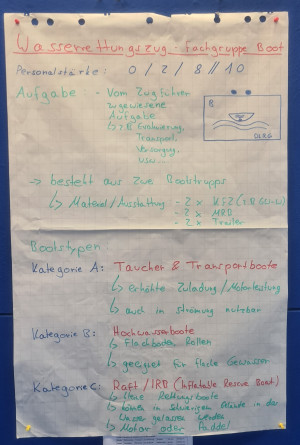 Wasserrettungszug - Fachgruppe Boot
Personalstärke: 0 / 2 / 8 // 10
Aufgabe - Vom Zugführer
zugewiesene
Aufgabe
↳ z.B. Evakuierung,
Transport,
Versorgung,
usw...
B
DLRG
→ besteht aus zwei Bootstrupps
↳ Material/Ausstattung - 2x KFZ (z.B.
- 2x MRB
- 2x Trailer
Bootstypen
Kategorie A: Taucher & Transportboote
↳ erhöhte Zuladung / Motorleistung
↳ auch in Strömung nutzbar
Kategorie B: Hochwasserboote
↳ Flachboden
↳ geeignet für flache Gewässer
Kategorie C: Raft / IRB (Inflatable Rescue Boat)
↳ kleine Rettungsboote
↳ können in schwierigen in das
Wasser gelassen werden
↳ Motor oder Paddel